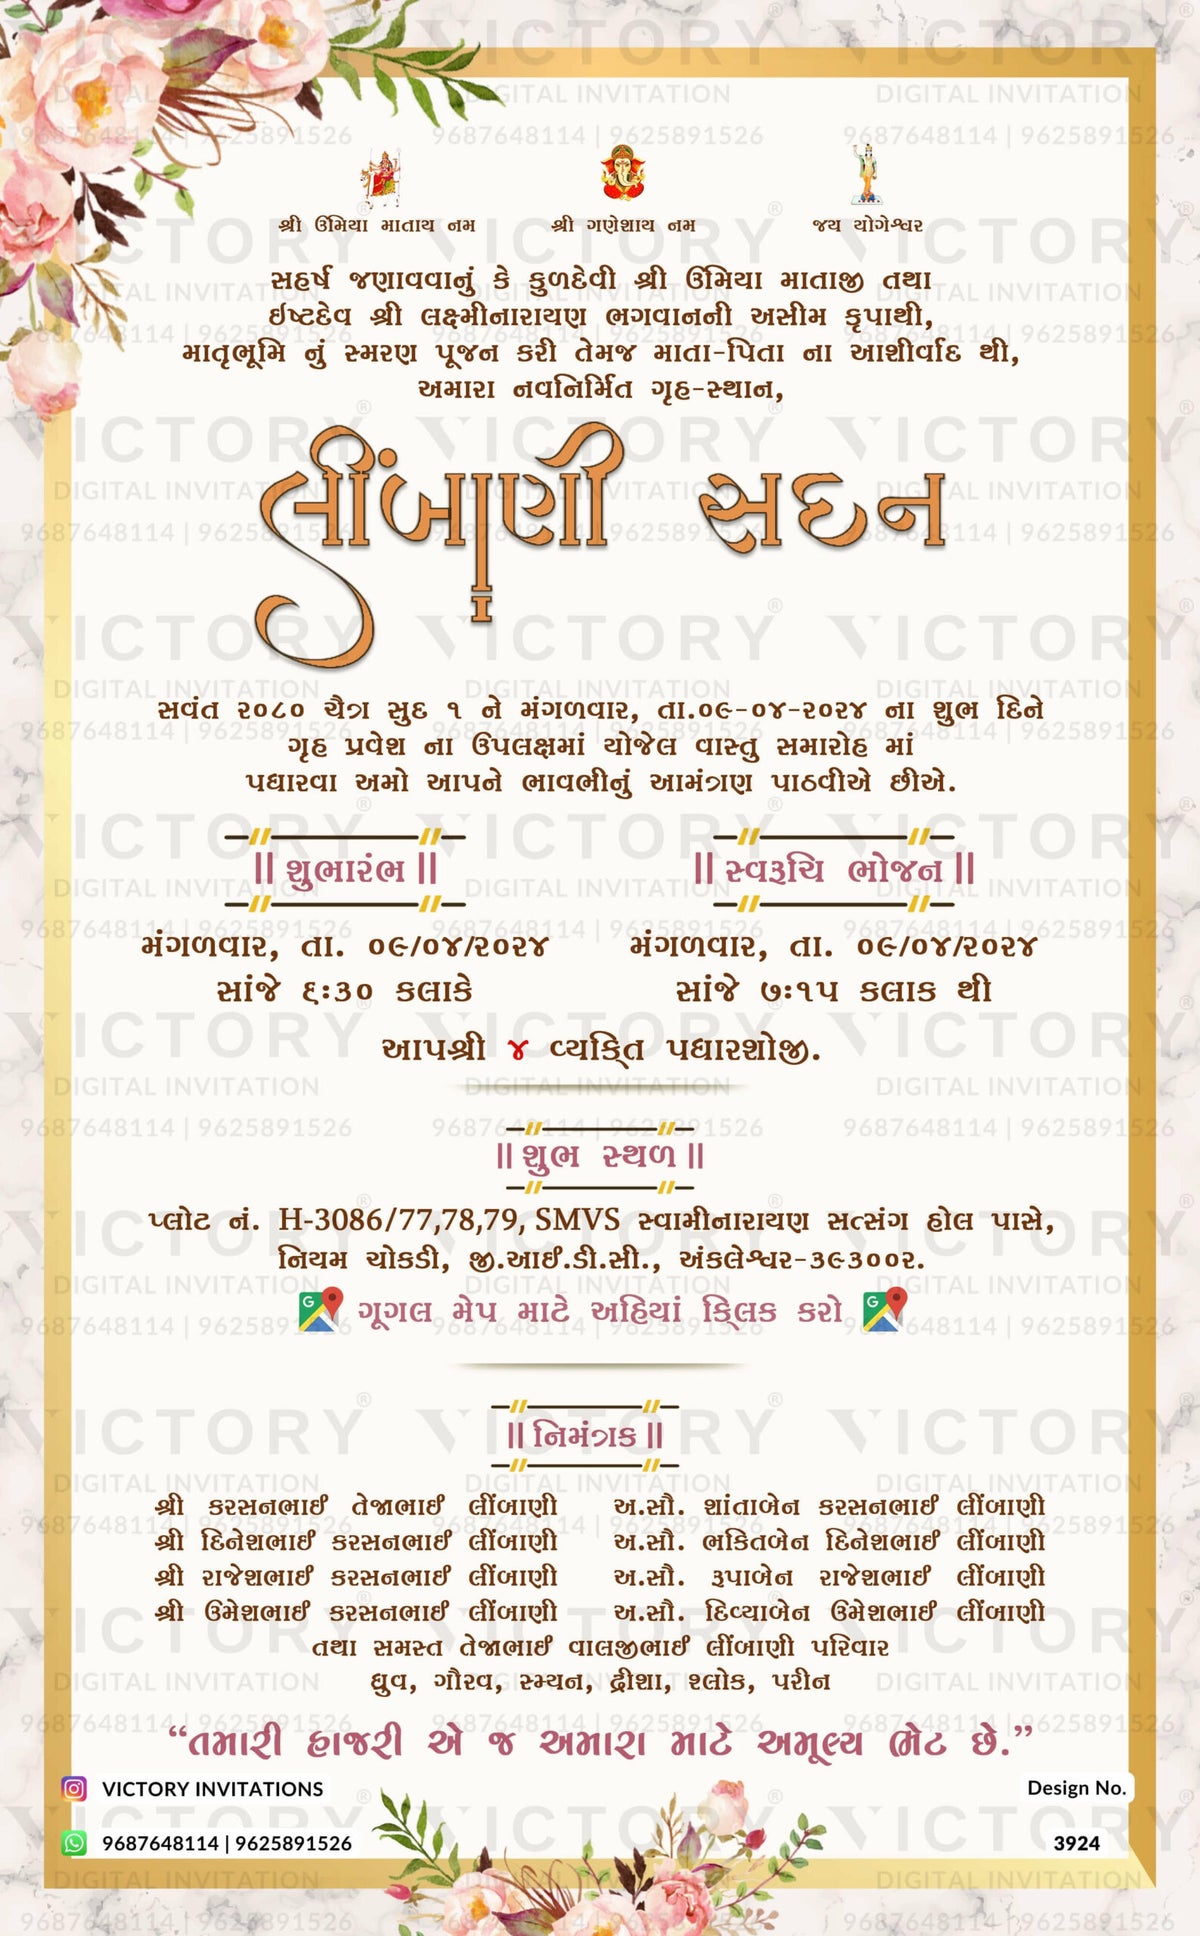 શ્રી ઉમિયા માતાય નમ શ્રી ગણેશાય નમ જય યોગેશ્વર
સહર્ષ જણાવવાનું કે કુળદેવી શ્રી ઉમિયા માતાજી તથા
ઇષ્ટદેવ શ્રી લક્ષ્મીનારાયણ ભગવાનની અસીમ કૃપાથી,
માતૃભૂમિ નું સ્મરણ પૂજન કરી તેમજ માતા-પિતા ના આશીર્વાદ થી,
અમારા નવનિર્મિત ગૃહ-સ્થાન,
લીંબાણી સદન
સવંત ૨૦૮૦ ચૈત્ર સુદ ૧ ને મંગળવાર, તા.૦૯-૦૪-૨૦૨૪ ના શુભ દિને
ગૃહ પ્રવેશ ના ઉપલક્ષમાં યોજેલ વાસ્તુ સમારોહ માં
પધારવા અમો આપને ભાવભીનું આમંત્રણ પાઠવીએ છીએ.
|| શુભારંભ || || સ્વરૂચિ ભોજન ||
મંગળવાર, તા. ૦૯/૦૪/૨૦૨૪ મંગળવાર, તા. ૦૯/૦૪/૨૦૨૪
સાંજે ૬:૩૦ કલાકે સાંજે ૭:૧૫ કલાક થી
આપશ્રી ૪ વ્યક્તિ પધારશોજી.
|| શુભ સ્થળ ||
પ્લોટ નં. H-3086/77,78,79, SMVS સ્વામીનારાયણ સત્સંગ હોલ પાસે,
નિયમ ચોકડી, જી.આઈ.ડી.સી., અંકલેશ્વર-૩૯૩૦૦૨.
ગૂગલ મેપ માટે અહિયાં ક્લિક કરો
|| નિમંત્રક ||
શ્રી કરસનભાઈ તેજાભાઈ લીંબાણી અ.સૌ. શાંતાબેન કરસનભાઈ લીંબાણી
શ્રી દિનેશભાઈ કરસનભાઈ લીંબાણી અ.સૌ. ભકિતબેન દિનેશભાઈ લીંબાણી
શ્રી રાજેશભાઈ કરસનભાઈ લીંબાણી અ.સૌ. રૂપાબેન રાજેશભાઈ લીંબાણી
શ્રી ઉમેશભાઈ કરસનભાઈ લીંબાણી અ.સૌ. દિવ્યાબેન ઉમેશભાઈ લીંબાણી
તથા સમસ્ત તેજાભાઈ વાલજીભાઈ લીંબાણી પરિવાર
ધ્રુવ, ગૌરવ, સ્મ્યન, દ્રીશા, શ્લોક, પરીન
“તમારી હાજરી એ જ અમારા માટે અમૂલ્ય ભેટ છે.”
VICTORY INVITATIONS Design No.
9687648114 | 9625891526 3924